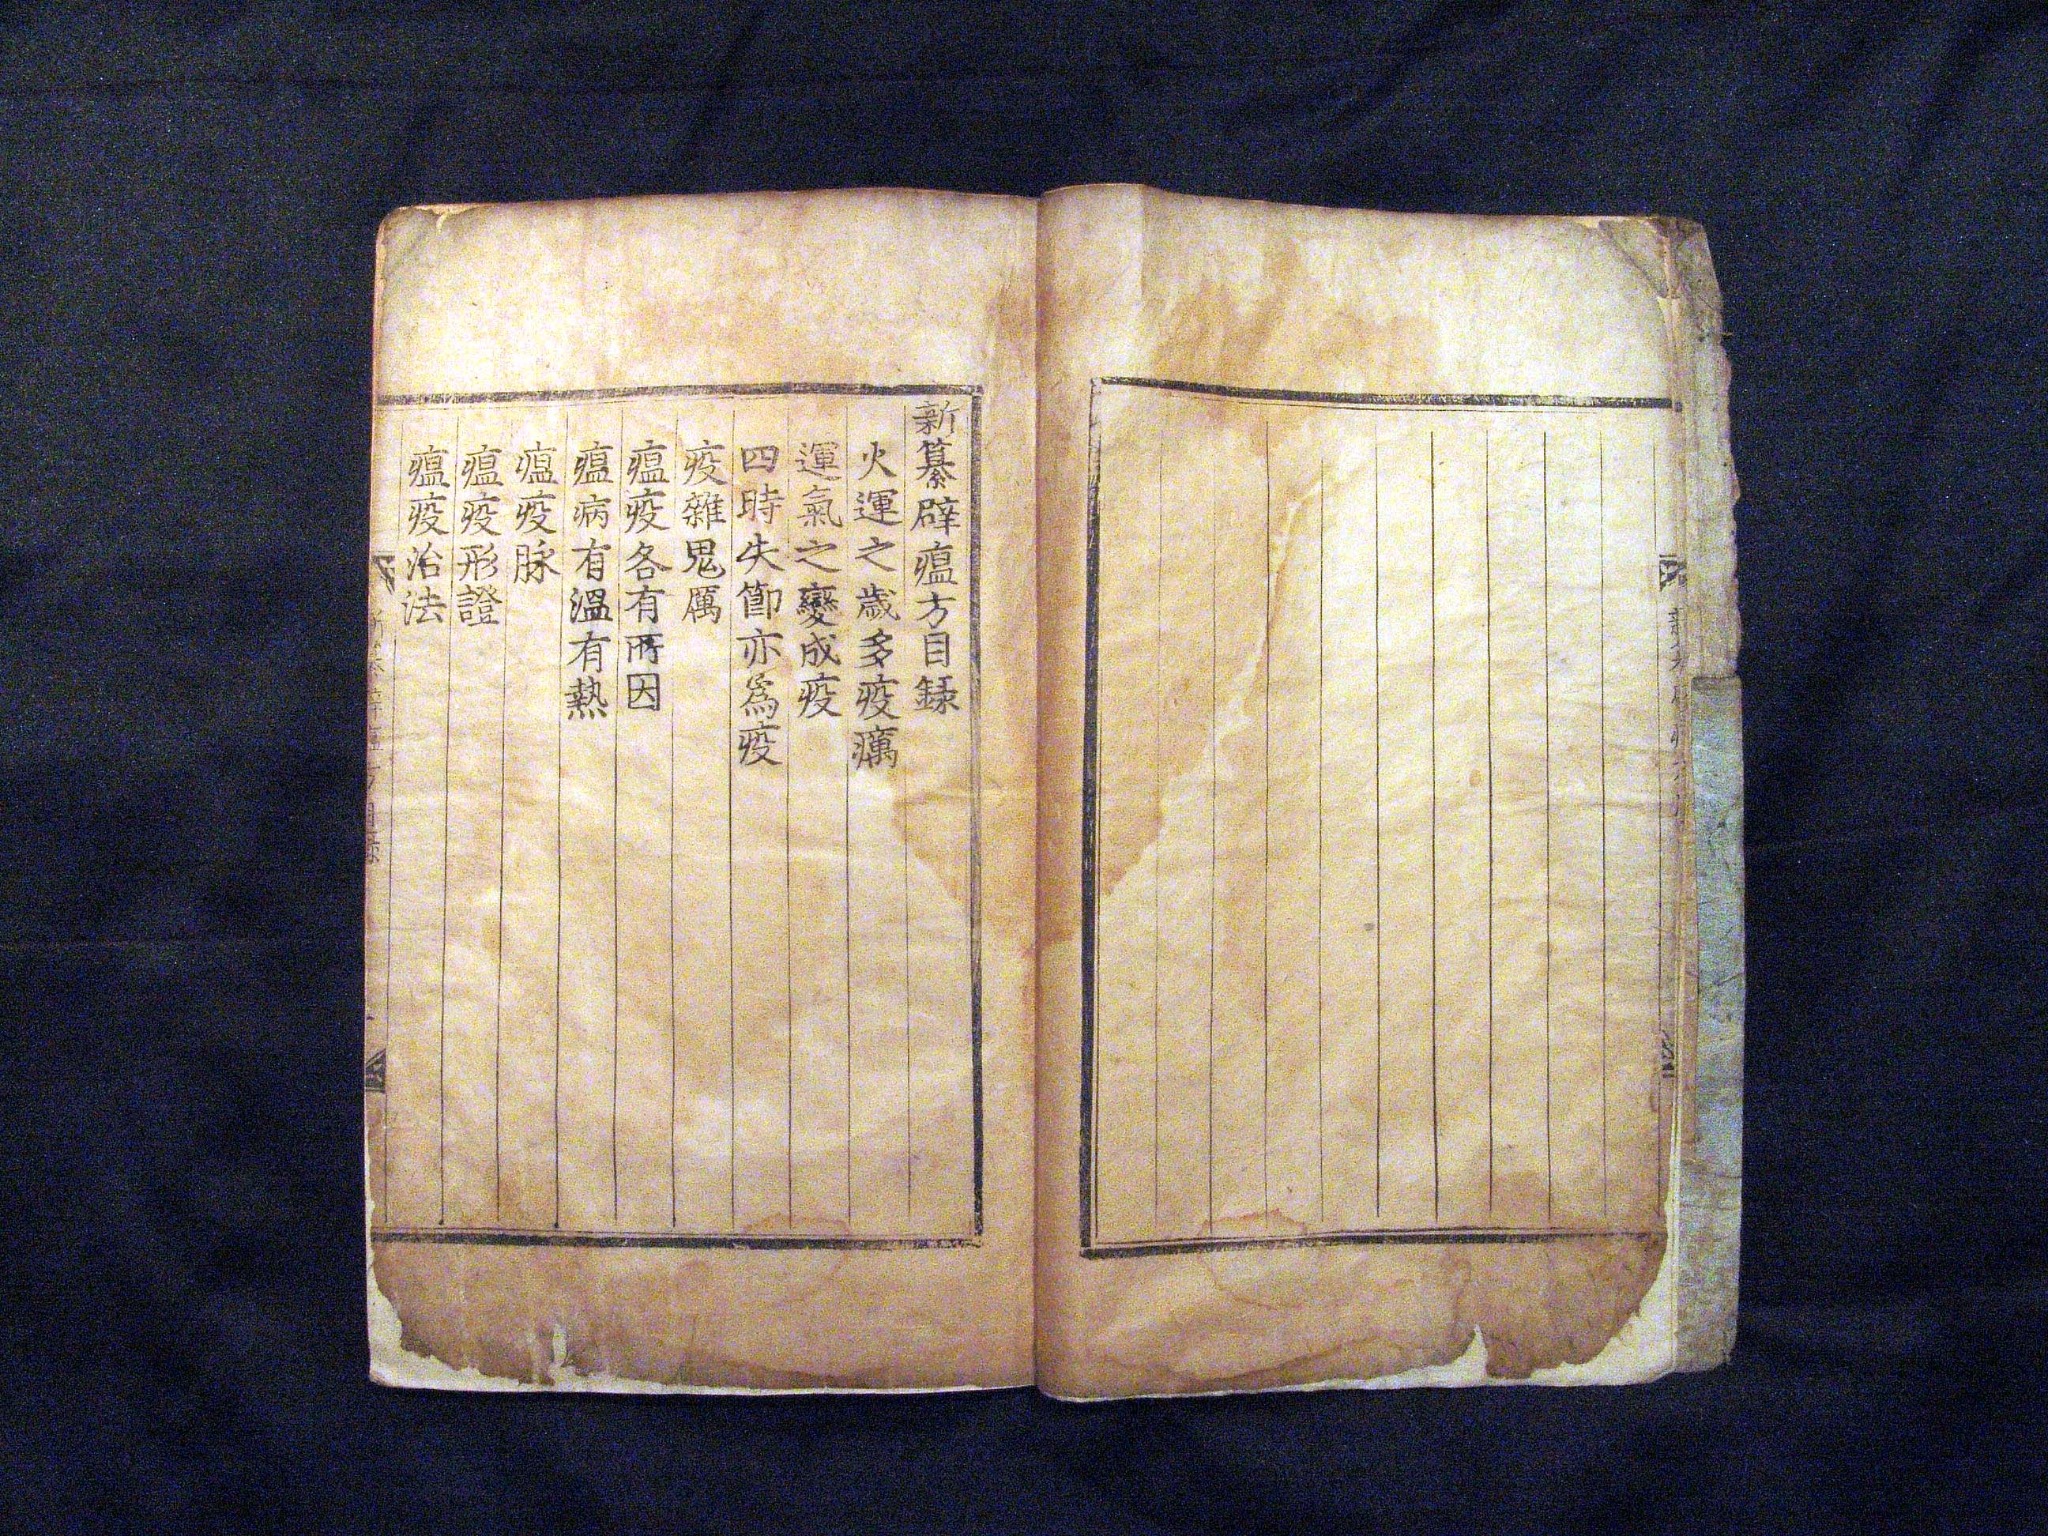 新纂辟瘟方目錄
火運之歲多疫癘
運氣之變成疫
四時失節亦爲疫
疫雜鬼厲
瘟疫各有所因
瘟病有溫有熱
瘟疫脉
瘟疫形證
瘟疫治法